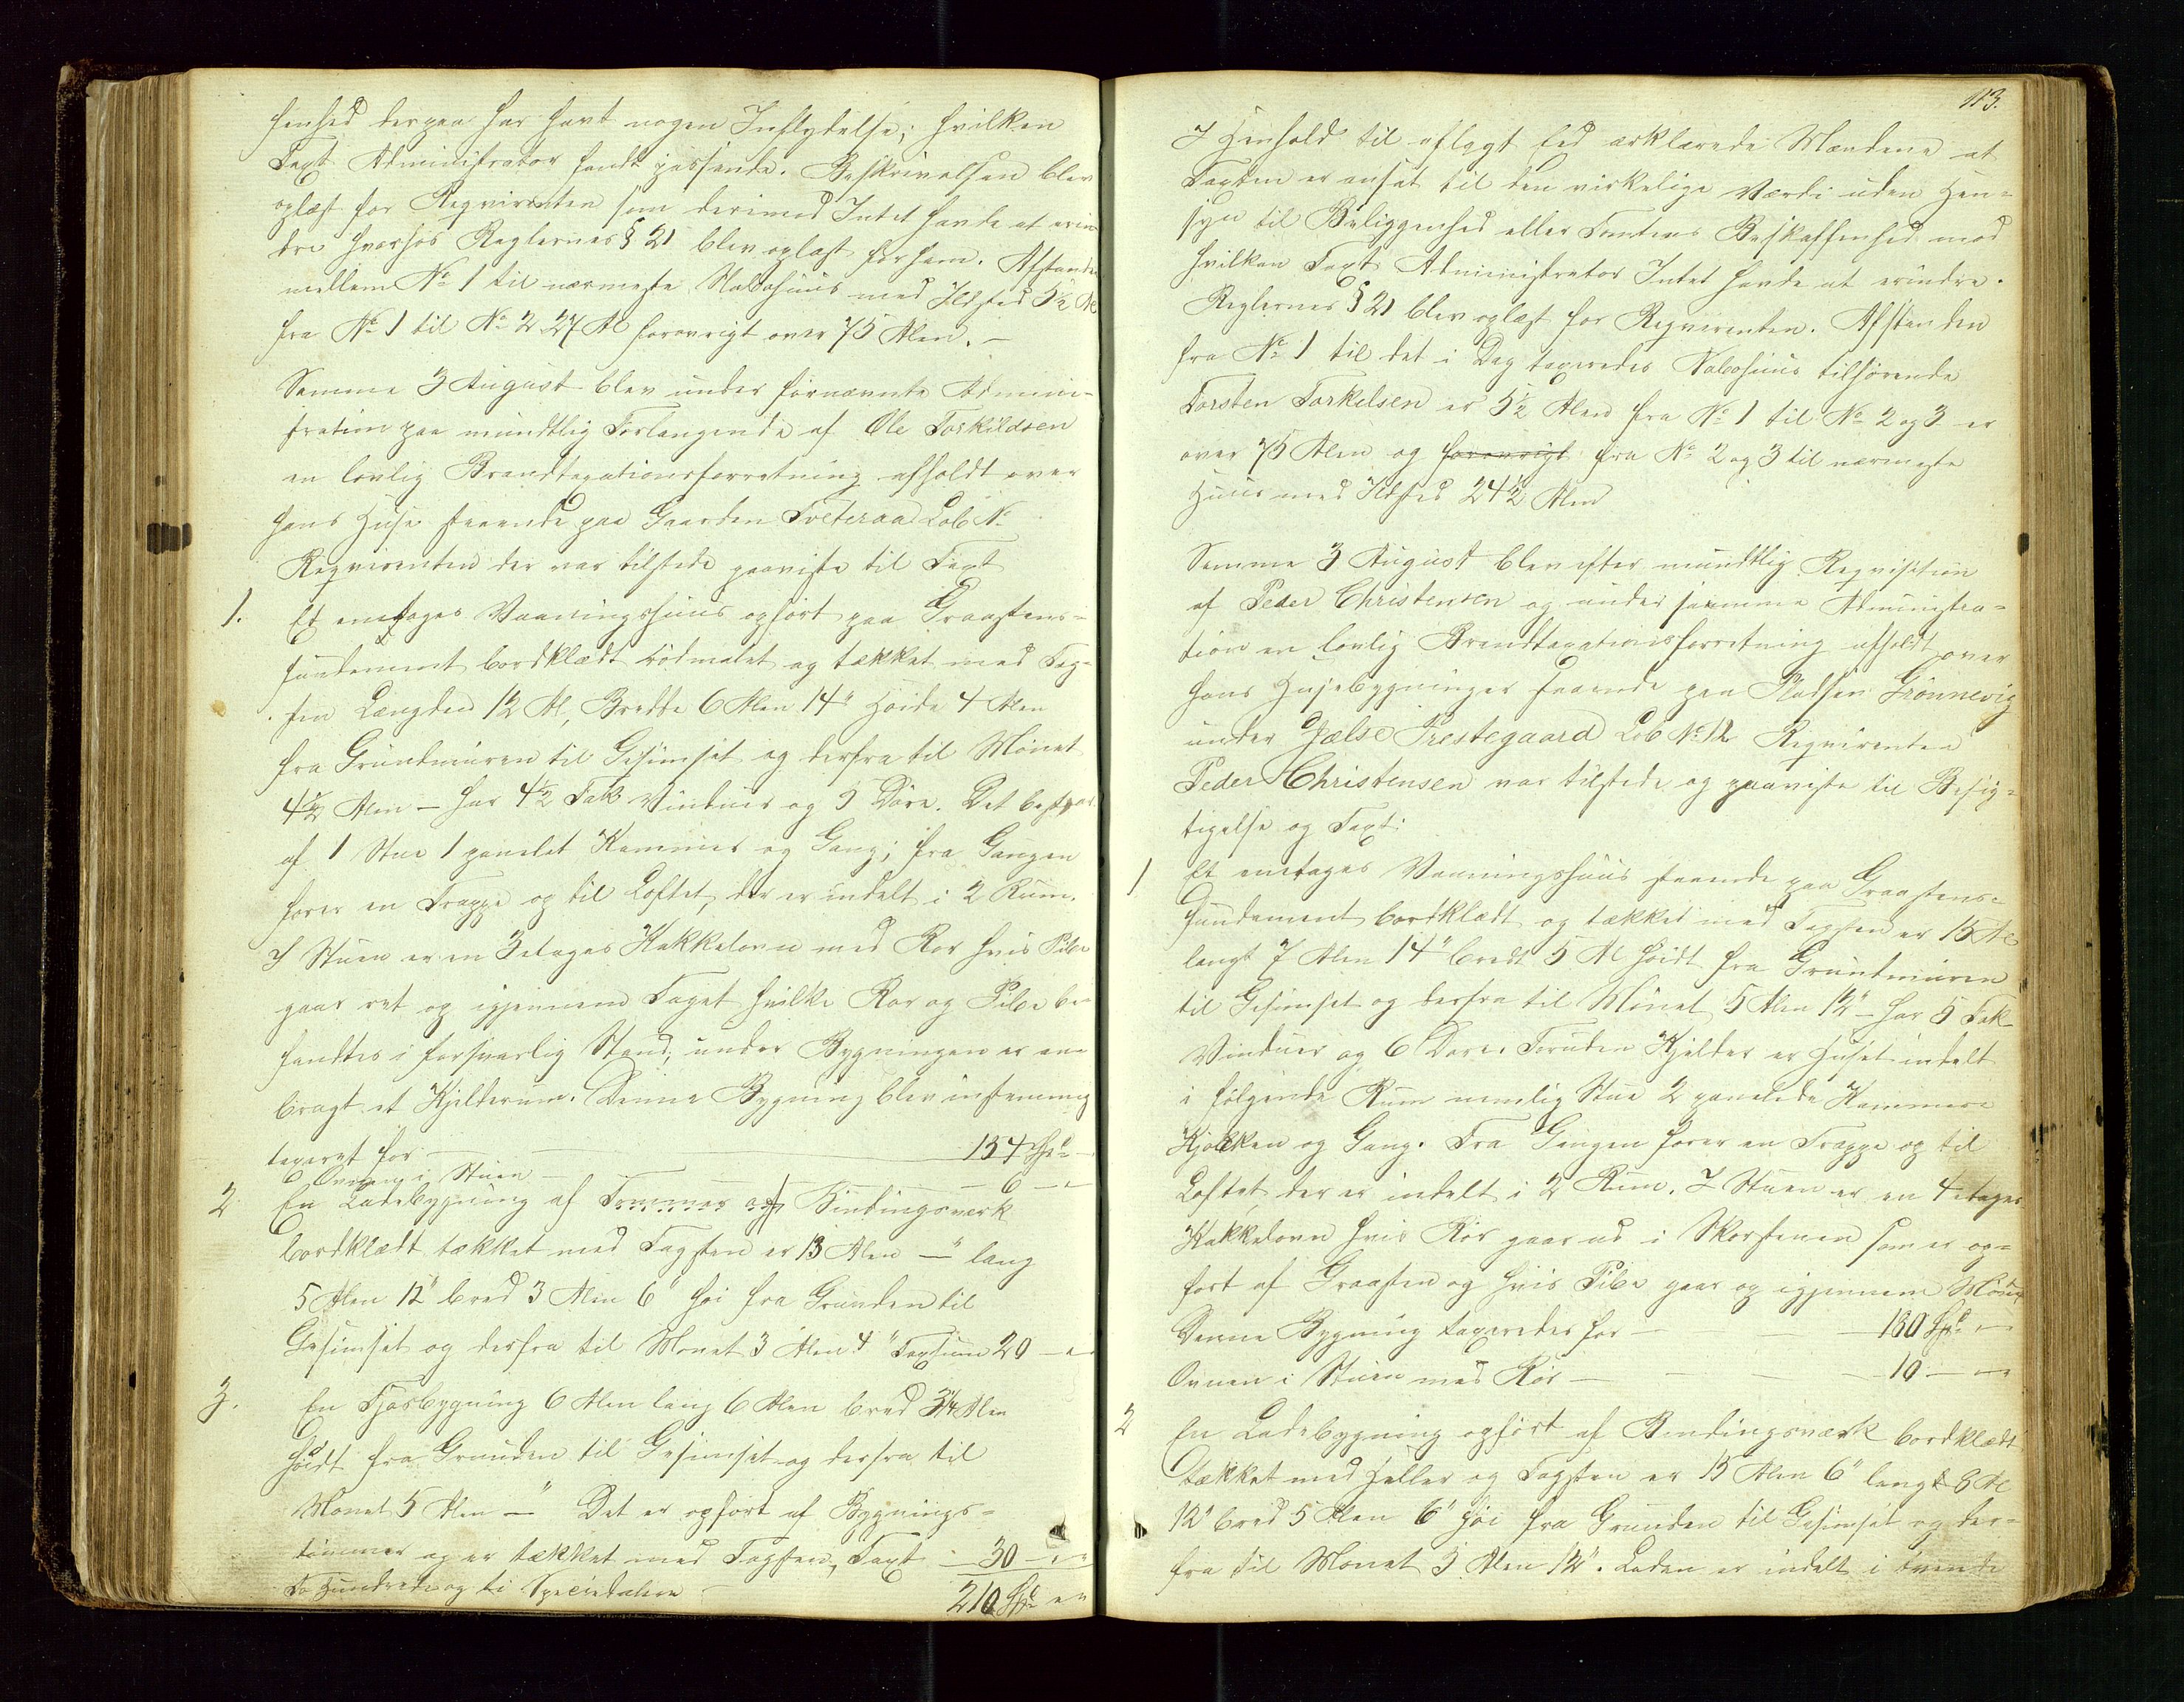 henhed derpaa har havt nogen Indflydelse; hvilken
Taxt Administrator fandt passende. Beskrivelsen blev
oplæst for Reqvirenten som derimod Intet havde at erin-
dre hvorhos Reglernes § 21 blev oplæst for ham. Afstanden
mellem No 1 til nærmeste Nabohuus med Ildsted 5½ Al
fra No 1 til No 2 27 Al forøvrigt over 75 Alen. —
Samme 3 August blev under fornævnte Admini-
stration paa mundtlig Forlangende af Ole Torkildsen
en lovlig Brandtaxationsforretning afholdt over
hans Huse staaende paa Gaarden Tveteraa Løb No
Reqvirenten der var tilstede paaviste til Taxt
1. Et enetages Vaaningshuus opført paa Graastens-
fundament bordklædt rødmalet og tækket med Tag-
sten Længden 12 Al, Bredde 6 Alen 14" Høide 4 Alen
fra Grundmuren til Gesimset og derfra til Mønet
4½ Alen — har 4½ Fak Vinduer og 5 Døre. Det bestaar
af 1 Stue 1 panelet Kammer og Gang; fra Gangen
fører en Trappe op til Loftet, der er indelt i 2 Rum.
I Stuen er en 3 etages Kakkelovn med Rør hvis Pibe
gaar ret op igjennem Taget hvilke Rør og Pibe be-
fandtes i forsvarlig Stand; under Bygningen er an-
bragt et Kjelderrum. Denne Bygning blev enstemmig
taxeret for — 154 Spd —
Ovnen i Stuen — 6 —
2 En Ladebygning af Tømmer og Bindingsværk
bordklædt tækket med Tagsten er 13 Alen —" lang
5 Alen 12" bred 3 Alen 6" høi fra Grunden til
Gesimset og derfra til Mønet 3 Alen 4" Taxtsum 20 — "
3. En Fjøsbygning 6 Alen lang 6 Alen bred 3¼ Alen
høidt fra Grunden til Gesimset og derfra til
Mønet 5 Alen —" Det er opført af Bygnings-
tømmer og er tækket med Tagsten, Taxt — 30 — "
To Hundrede og ti Speciedaler 210 Spd "
113.
I Henhold til aflagt Eed erklærede Mændene at
Taxten er ansat til den virkelige Værdi uden Hen-
syn til Beliggenhed eller Tomtens Beskaffenhed mod
hvilken Taxt Administrator Intet havde at erindre.
Reglernes § 21 blev oplæst for Reqvirenten. Afstanden
fra No 1 til det i Dag taxeredes Nabohuus tilhørende
Torsten Torkelsen er 5½ Alen fra No 1 til No 2 og 3 er
over 75 Alen og forøvrigt fra No 2 og 3 til nærmeste
Huus med Ildsted 24½ Alen
Samme 3 August blev efter mundtlig Reqvisition
af Peder Christensen og under samme Administra-
tion en lovlig Brandtaxationsforretning afholdt over
hans Husebygninger staaende paa Pladsen Grønnevig
under Jælse Prestegaard Løb No 12 Reqvirenten
Peder Christensen var tilstede og paaviste til Besig-
tigelse og Taxt:
1 Et enetages Vaaningshuus staaende paa Graastens-
fundament bordklædt og tækket med Tagsten er 15 Al
langt 7 Alen 14" bredt 5 Al høidt fra Grundmuren
til Gesimset og derfra til Mønet 5 Alen 12" — har 5 Fak
Vinduer og 6 Døre. Foruden Kjelder er Huset indelt
i følgende Rum nemlig Stue 2 panelede Kammere
Kjøkken og Gang. Fra Gangen fører en Trappe op til
Loftet der er indelt i 2 Rum. I Stuen er en 4 etages
Kakkelovn hvis Rør gaar ud i Skorstenen som er op-
ført af Graasten og hvis Pibe gaar op igjennem Mønet
Denne Bygning taxeredes for — 180 Spd "
Ovnen i Stuen med Rør — 10 — "
2 En Ladebygning opført af Bindingsværk bordklædt
tækket med Heller og Tagsten er 15 Alen 6" langt 8 Al
12" bred 5 Alen 6" høi fra Grunden til Gesimset og der-
fra til Mønet 3 Alen 12". Laden er indelt i tvende